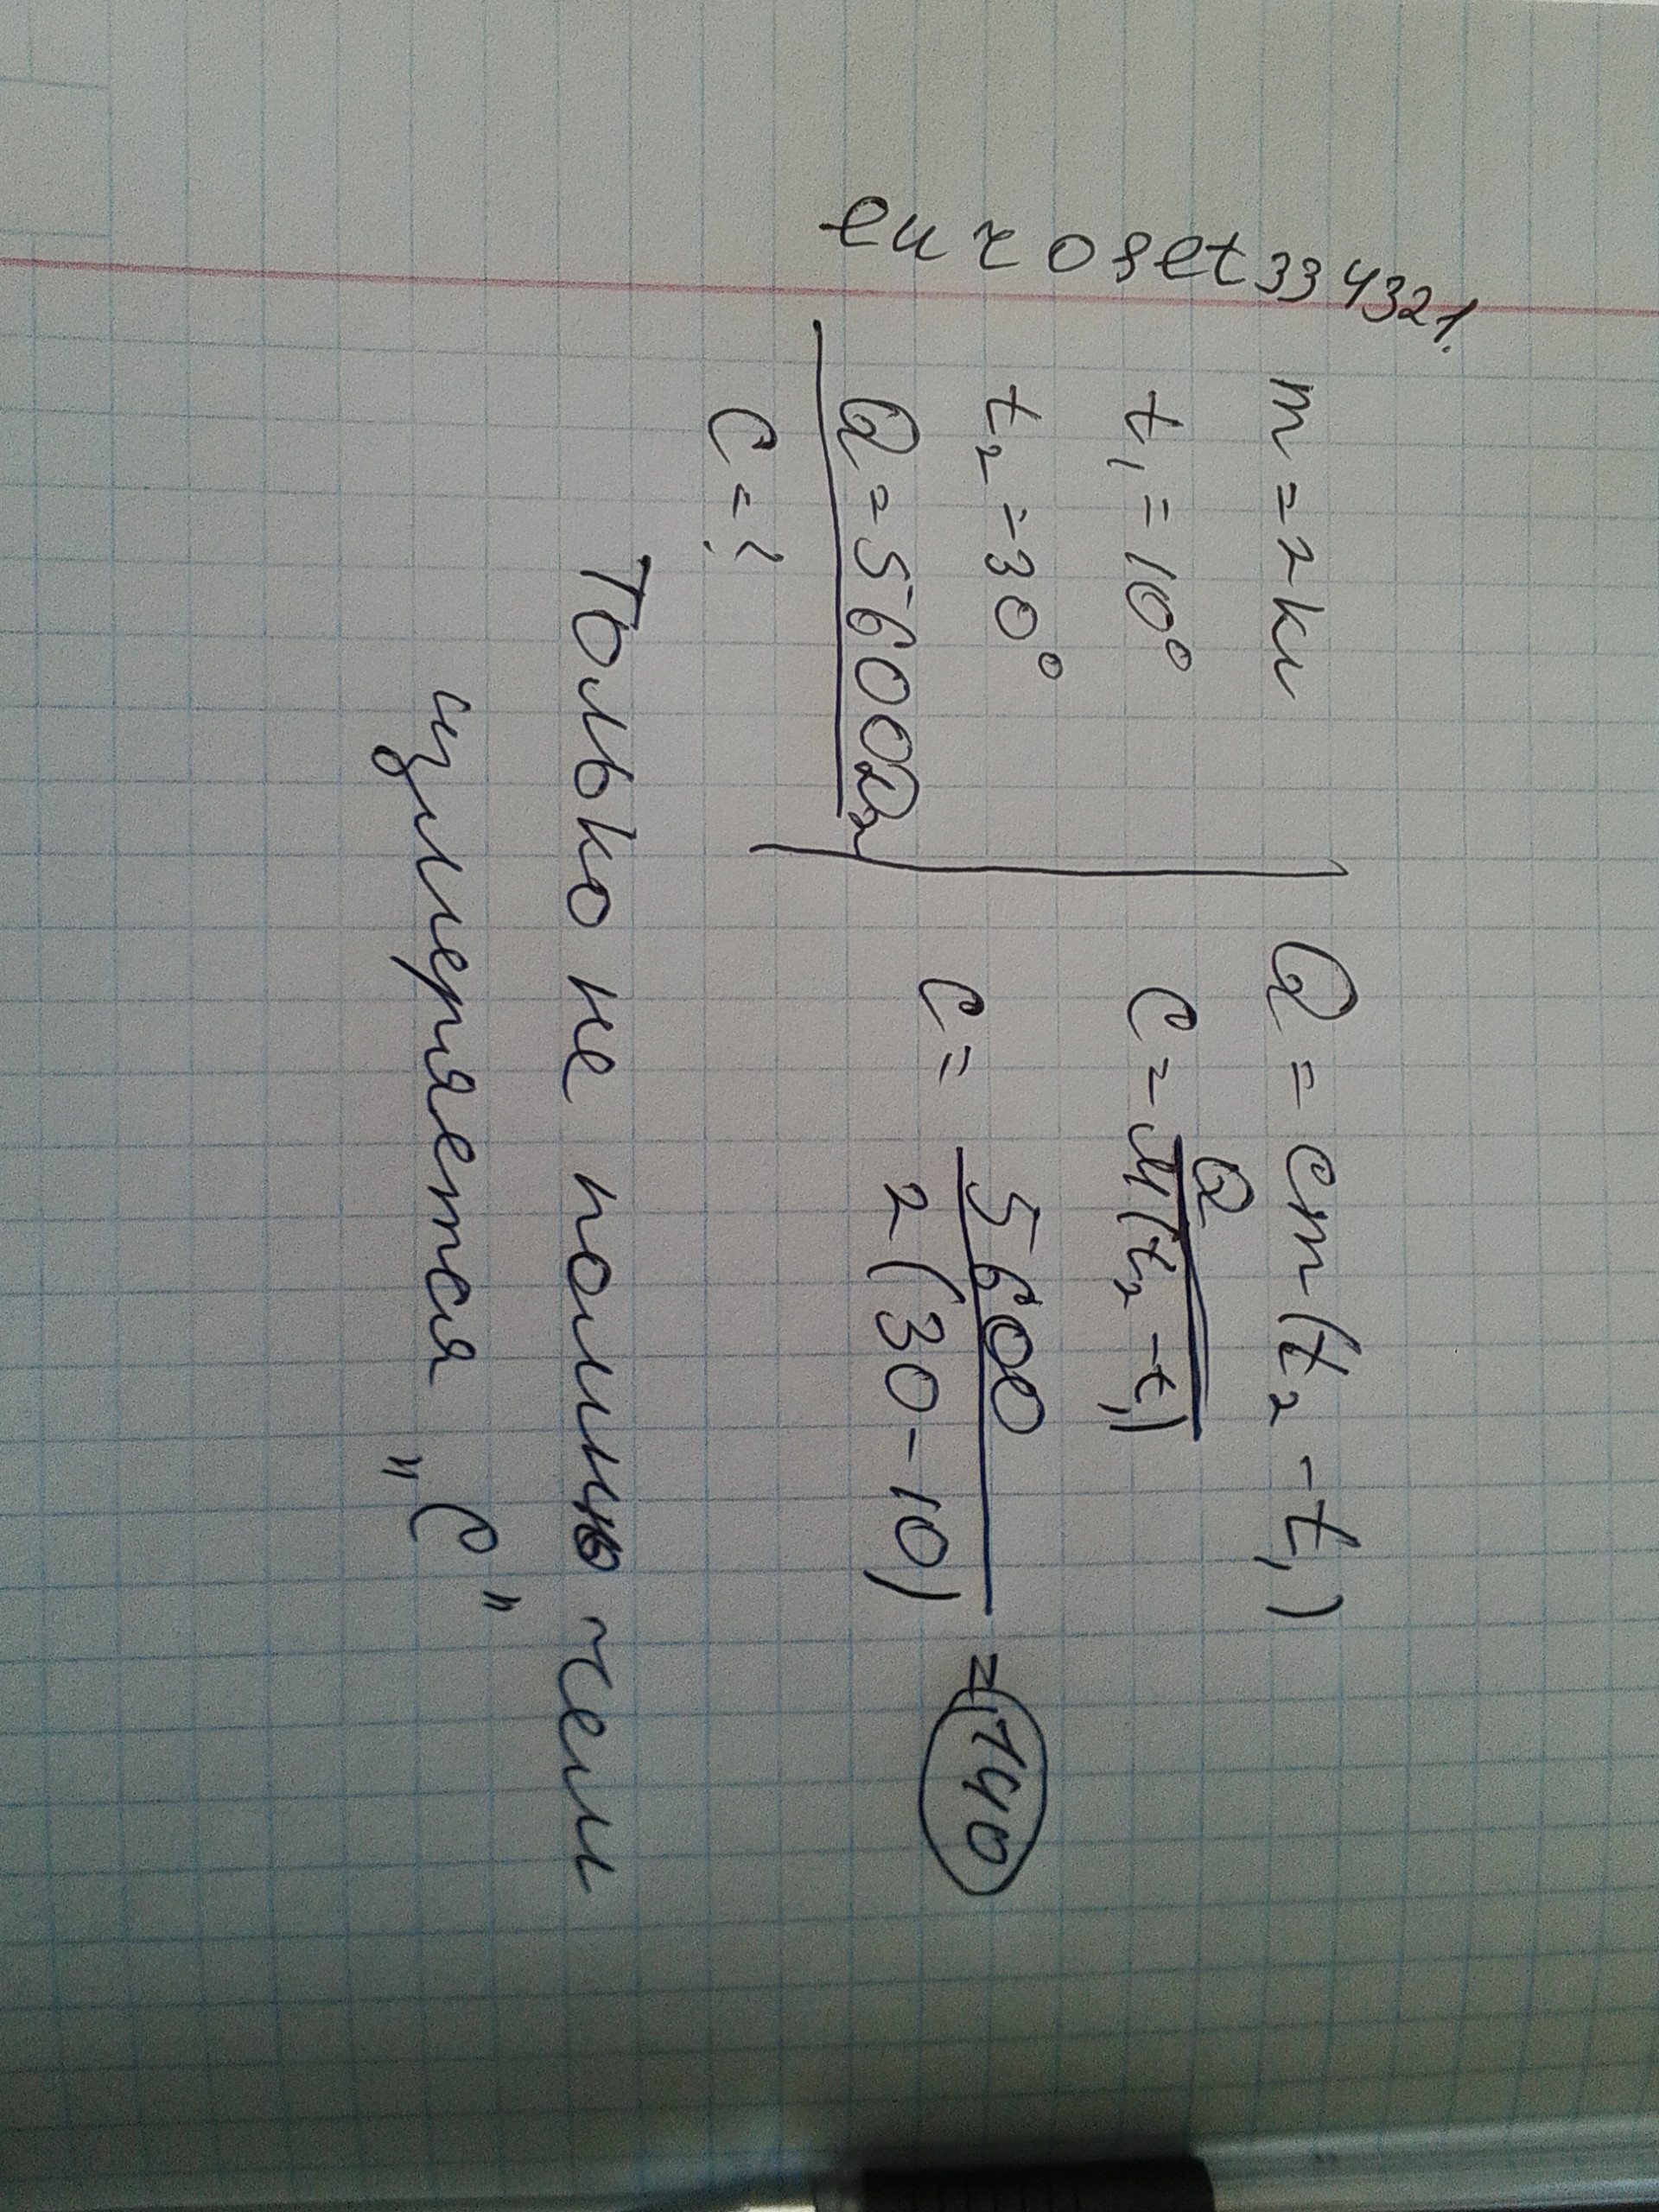 euroset334321.
m = 2кг
t₁ = 10°
t₂ = 30°
Q = 5600Дж
C = ?
Q = cm(t₂ - t₁)
C = Q / M(t₂ - t₁)
C = 5600 / 2(30 - 10) = 140
Только не помню чем
измеряется „С"